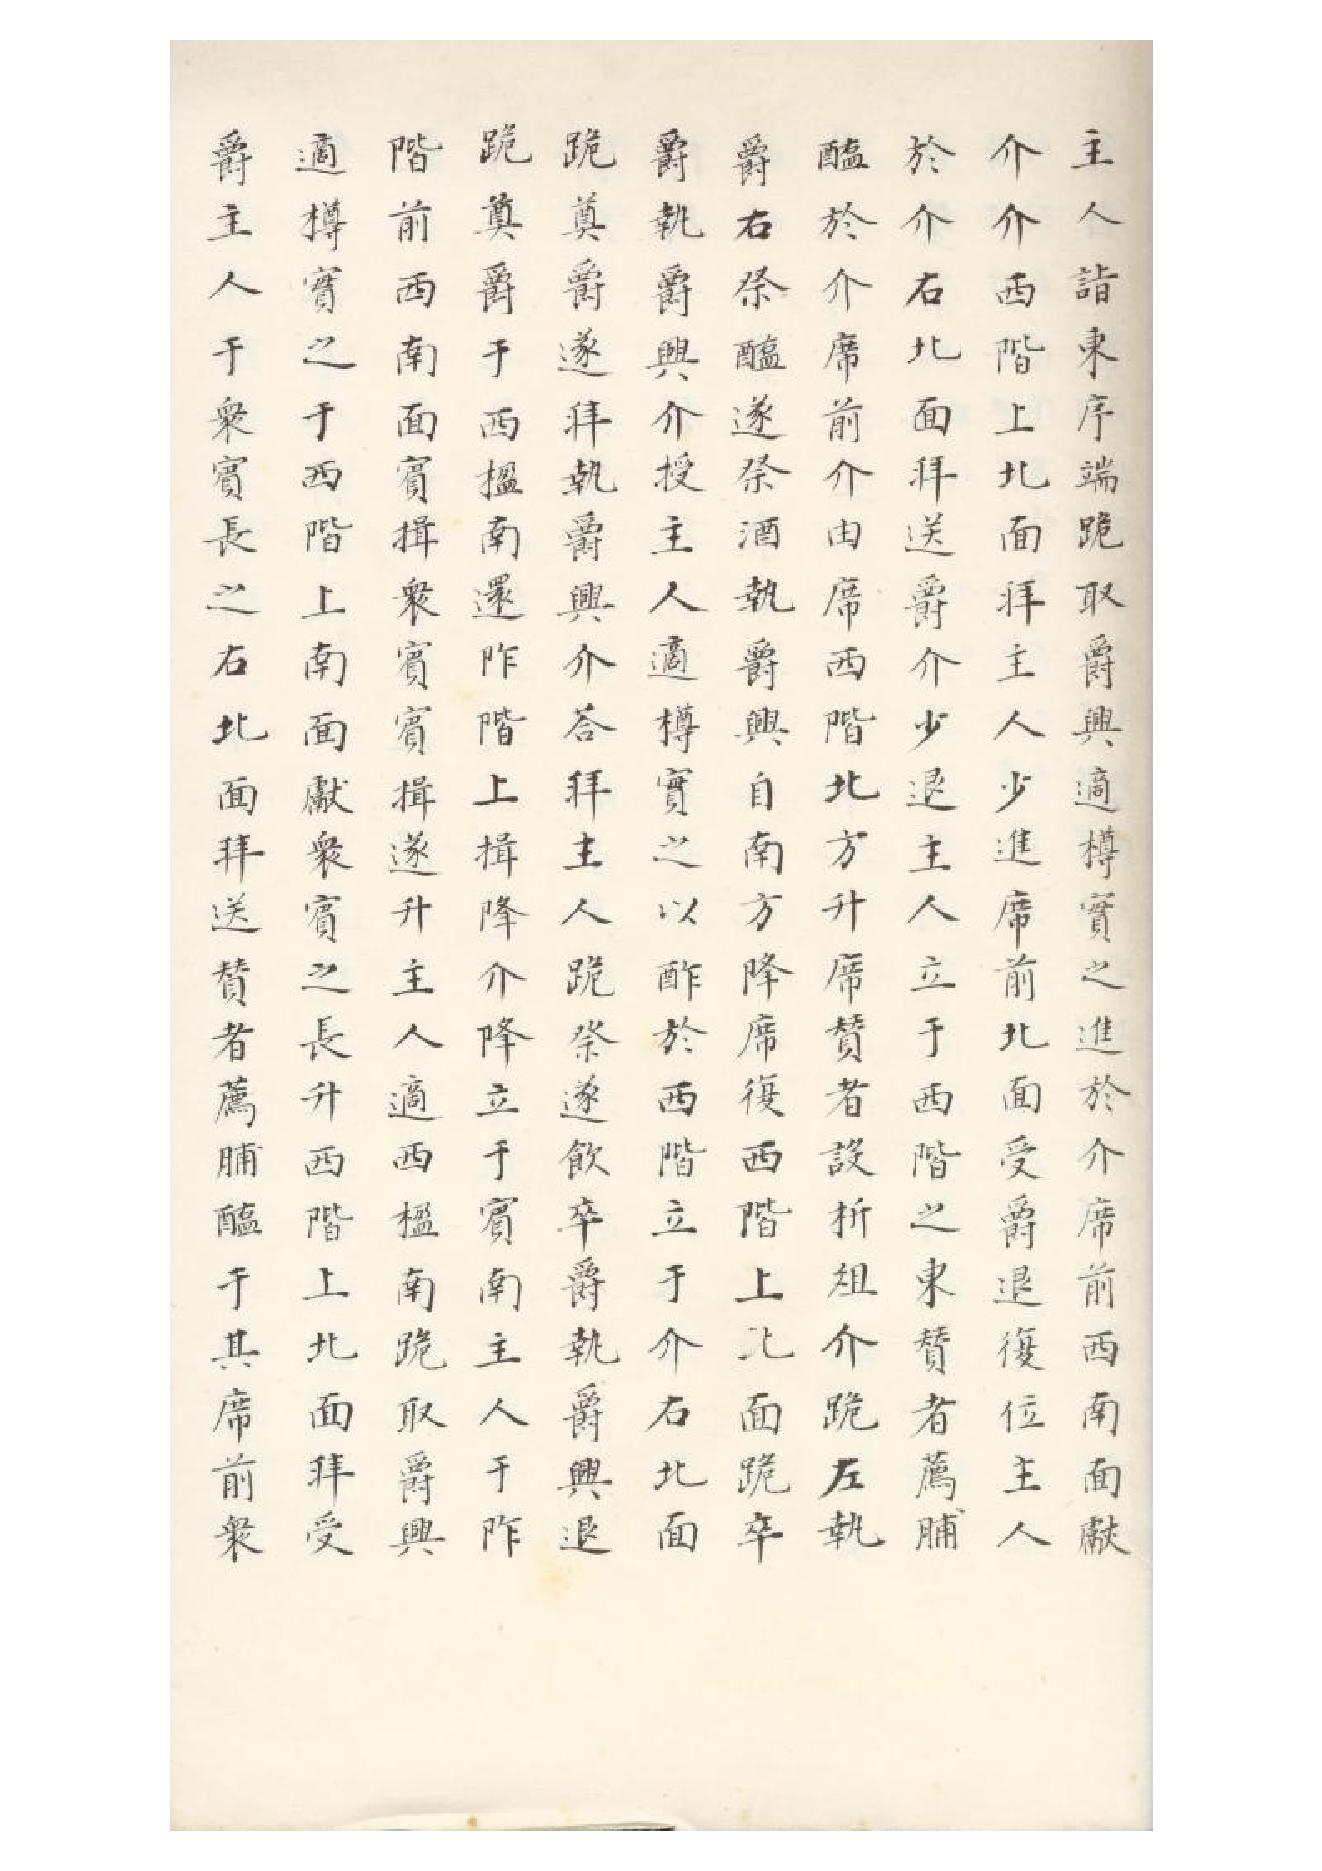 主人詣東序端跪取爵興適樽實之進於介席前西南面獻
介介西階上北面拜主人少進席前北面受爵退復位主人
於介右北面拜送爵介少退主人立于西階之東賛者薦脯
醢於介席前介由席西階北方升席賛者設折俎介跪左執
爵右祭醢遂祭酒執爵興自南方降席復西階上北面跪卒
爵執爵興介授主人適樽實之以酢於西階立于介右北面
跪奠爵遂拜執爵興介荅拜主人跪祭遂飲卒爵執爵興退
跪奠爵于西楹南還阼階上揖降介降立于賓南主人于阼
階前西南面賓揖衆賓賓揖遂升主人適西楹南跪取爵興
適樽實之于西階上南面獻衆賓之長升西階上北面拜受
爵主人于衆賓長之右北面拜送賛者薦脯醢于其席前衆